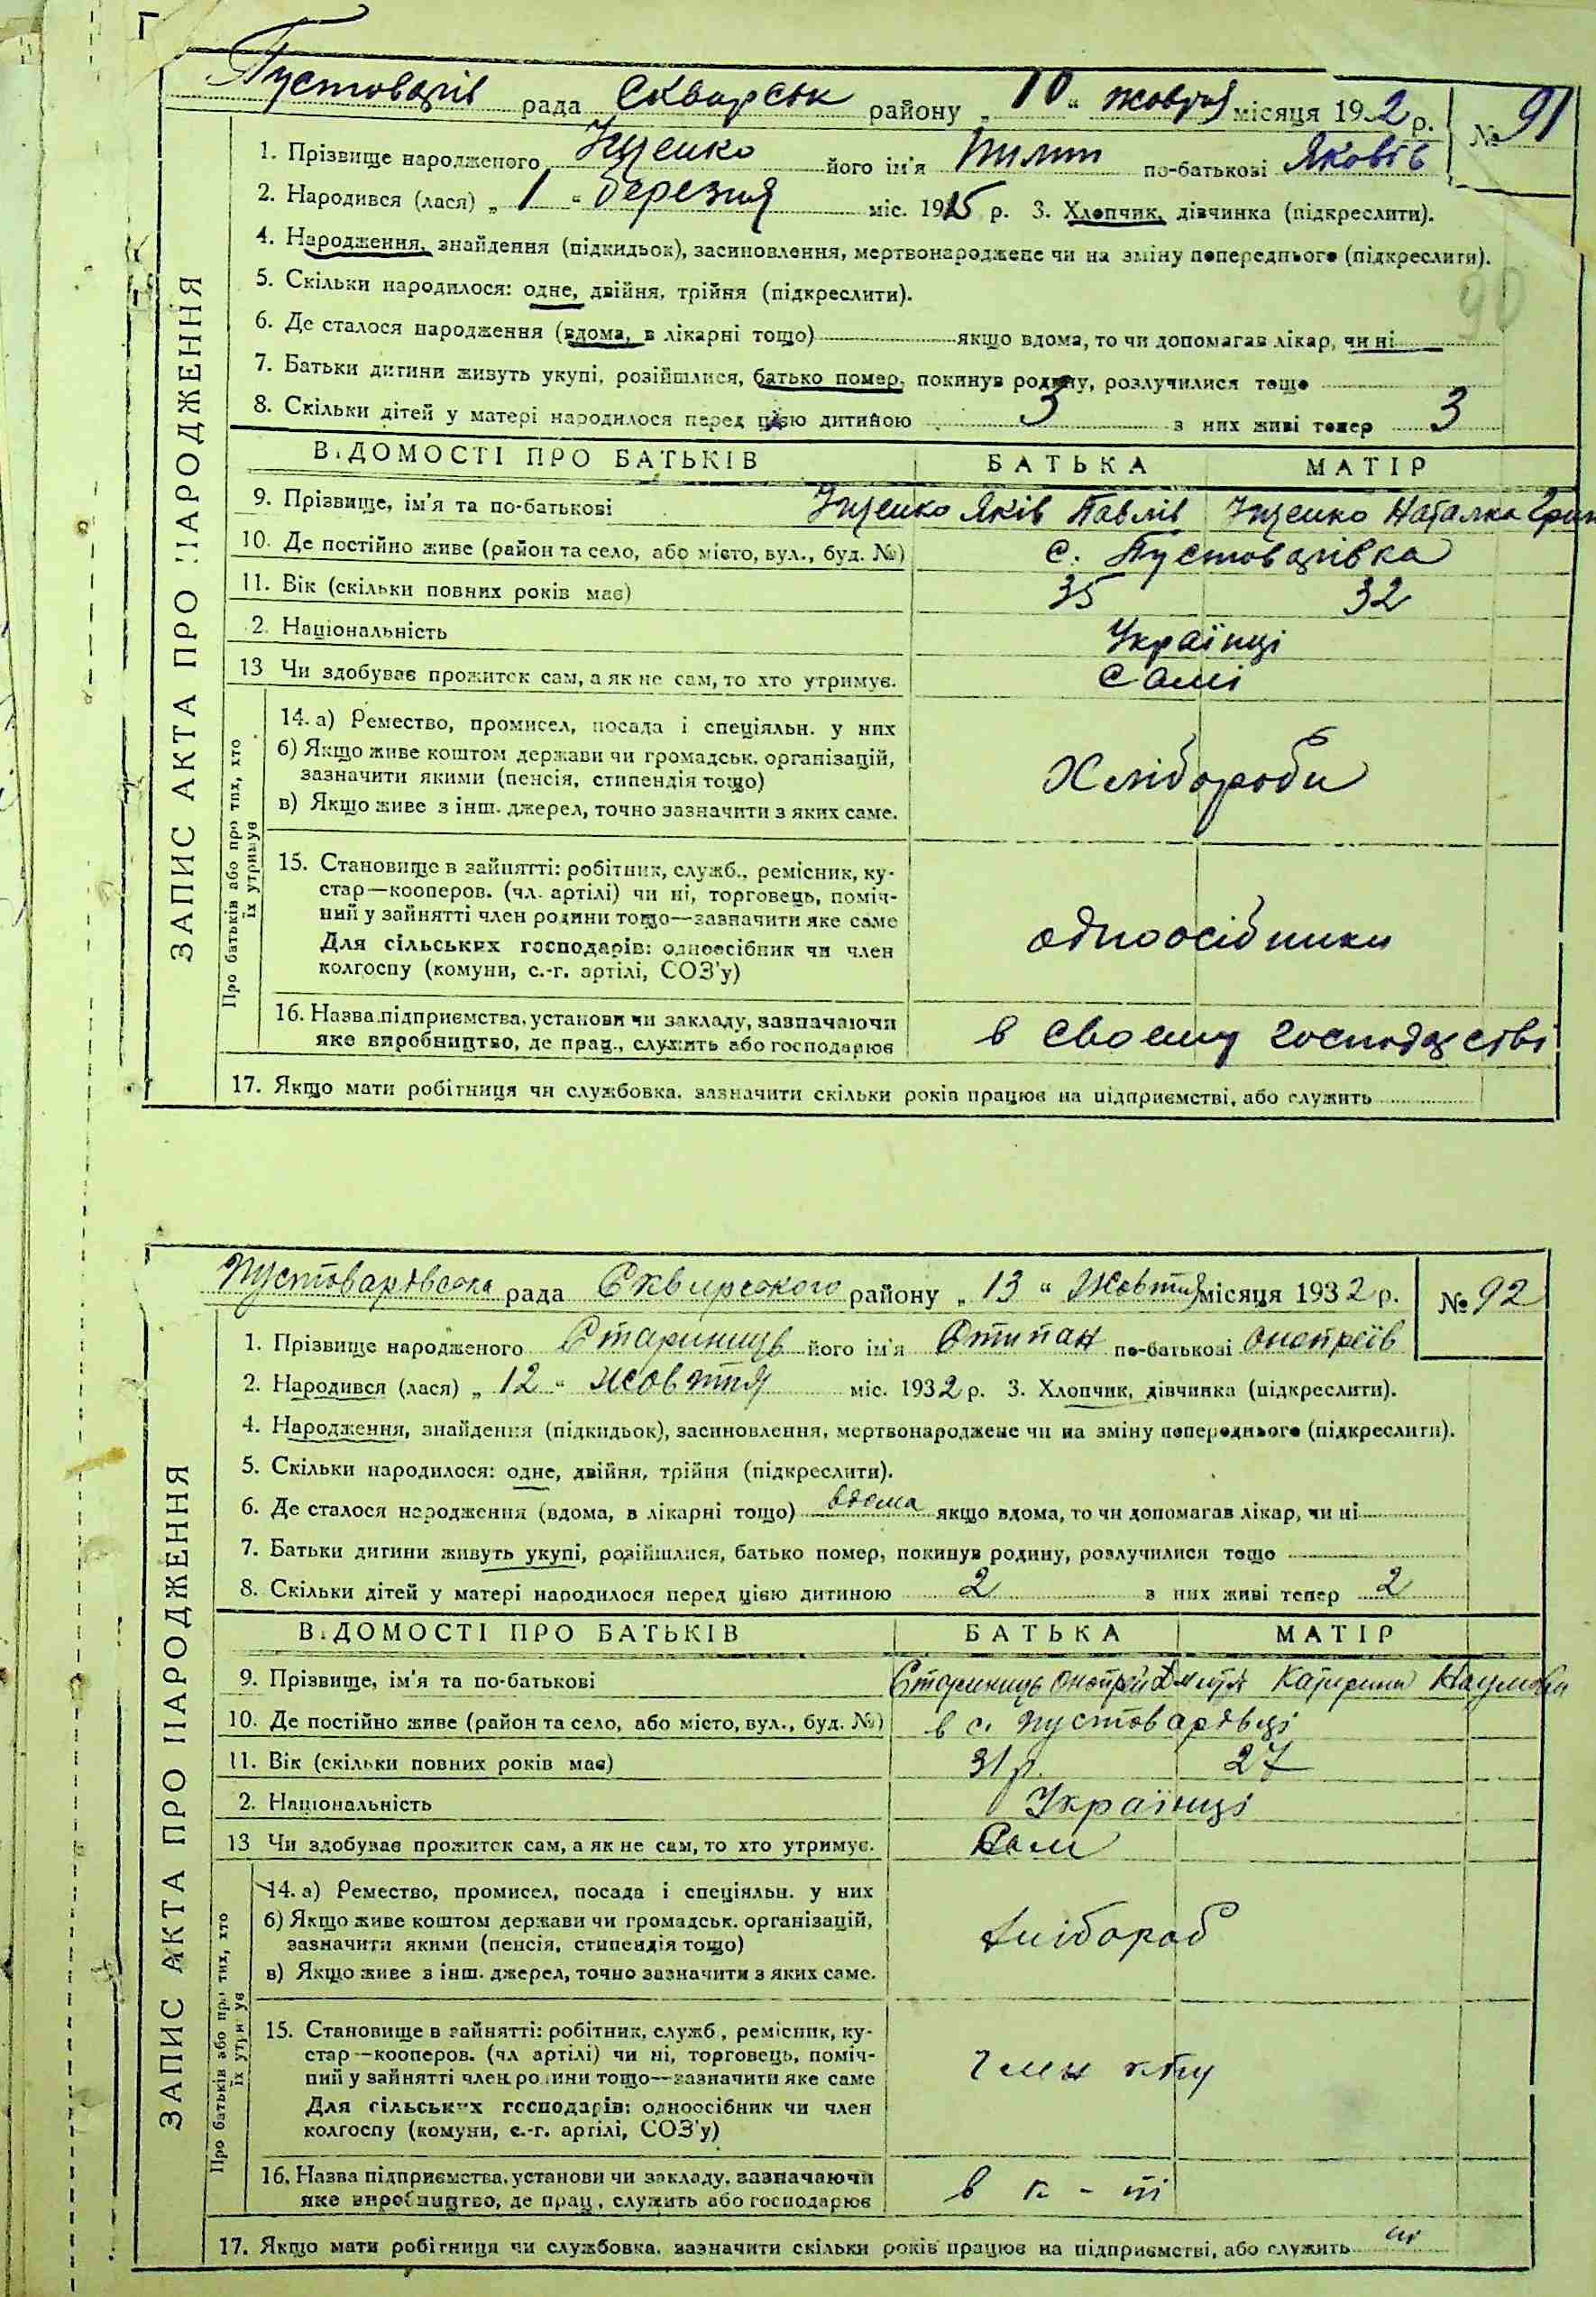 Пустоварів рада Сквирськ району „10“ жовтня місяця 19 2 р. № 91
1. Прізвище народженого Іщенко його ім'я Пилип по-батькові Яковів
2. Народився (лася) „1“ березня міс. 1915 р. 3. Хлопчик, дівчинка (підкреслити).
4. Народження, знайдення (підкидьок), засиновлення, мертвонароджене чи на зміну попереднього (підкреслити).
90
5. Скільки народилося: одне, двійня, трійня (підкреслити).
6. Де сталося народження (вдома, в лікарні тощо) якщо вдома, то чи допомагав лікар, чи ні
7. Батьки дитини живуть укупі, розійшлися, батько помер, покинув родину, розлучилися тощо
8. Скільки дітей у матері народилося перед цією дитиною 3 з них живі тепер 3
ВІДОМОСТІ ПРО БАТЬКІВ БАТЬКА МАТІР
9. Прізвище, ім'я та по-батькові Іщенко Яків Павлів Іщенко Наталка Грип
10. Де постійно живе (район та село, або місто, вул., буд. №) с. Пустоварівка
11. Вік (скільки повних років має) 35 32
2. Національність Українці
13 Чи здобуває прожиток сам, а як не сам, то хто утримує. Самі
14. а) Ремество, промисел, посада і спеціяльн. у них
б) Якщо живе коштом держави чи громадськ. організацій,
зазначити якими (пенсія, стипендія тощо) Хлібороби
в) Якщо живе з інш. джерел, точно зазначити з яких саме.
15. Становище в зайнятті: робітник, служб., ремісник, ку-
стар—кооперов. (чл. артілі) чи ні, торговець, поміч-
ний у зайнятті член родини тощо—зазначити яке саме
Для сільських господарів: одноосібник чи член одноосібники
колгоспу (комуни, с.-г. артілі, СОЗ'у)
16. Назва підприємства, установи чи закладу, зазначаючи
яке виробництво, де прац., служить або господарює в своєму господарстві
17. Якщо мати робітниця чи службовка, зазначити скільки років працює на підприємстві, або служить
ЗАПИС АКТА ПРО НАРОДЖЕННЯ
Про батьків або про тих, хто
їх утримує
Пустоварівська рада Сквирського району „13“ Жовтня місяця 1932 р. № 92
1. Прізвище народженого Стариниць його ім'я Стипан по-батькові Онопріїв
2. Народився (лася) „12“ жовтня міс. 1932 р. 3. Хлопчик, дівчинка (підкреслити).
4. Народження, знайдення (підкидьок), засиновлення, мертвонароджене чи на зміну попереднього (підкреслити).
5. Скільки народилося: одне, двійня, трійня (підкреслити).
6. Де сталося народження (вдома, в лікарні тощо) вдома якщо вдома, то чи допомагав лікар, чи ні
7. Батьки дитини живуть укупі, розійшлися, батько помер, покинув родину, розлучилися тощо
8. Скільки дітей у матері народилося перед цією дитиною 2 з них живі тепер 2
ВІДОМОСТІ ПРО БАТЬКІВ БАТЬКА МАТІР
9. Прізвище, ім'я та по-батькові Стариниць Онопрій Катерина Наумова
10. Де постійно живе (район та село, або місто, вул., буд. №) в с. Пустоварівці
11. Вік (скільки повних років має) 31 р. 27
2. Національність Українці
13 Чи здобуває прожиток сам, а як не сам, то хто утримує. Сам
14. а) Ремество, промисел, посада і спеціяльн. у них
б) Якщо живе коштом держави чи громадськ. організацій, хлібороб
зазначити якими (пенсія, стипендія тощо)
в) Якщо живе з інш. джерел, точно зазначити з яких саме.
15. Становище в зайнятті: робітник, служб., ремісник, ку-
стар—кооперов. (чл артілі) чи ні, торговець, поміч-
ний у зайнятті член родини тощо—зазначити яке саме член
Для сільських господарів: одноосібник чи член
колгоспу (комуни, с.-г. артілі, СОЗ'у)
16. Назва підприємства, установи чи закладу, зазначаючи
яке виробництво, де прац., служить або господарює в к-пі
17. Якщо мати робітниця чи службовка, зазначити скільки років працює на підприємстві, або служить ні
ЗАПИС АКТА ПРО НАРОДЖЕННЯ
Про батьків або про тих, хто
їх утримує